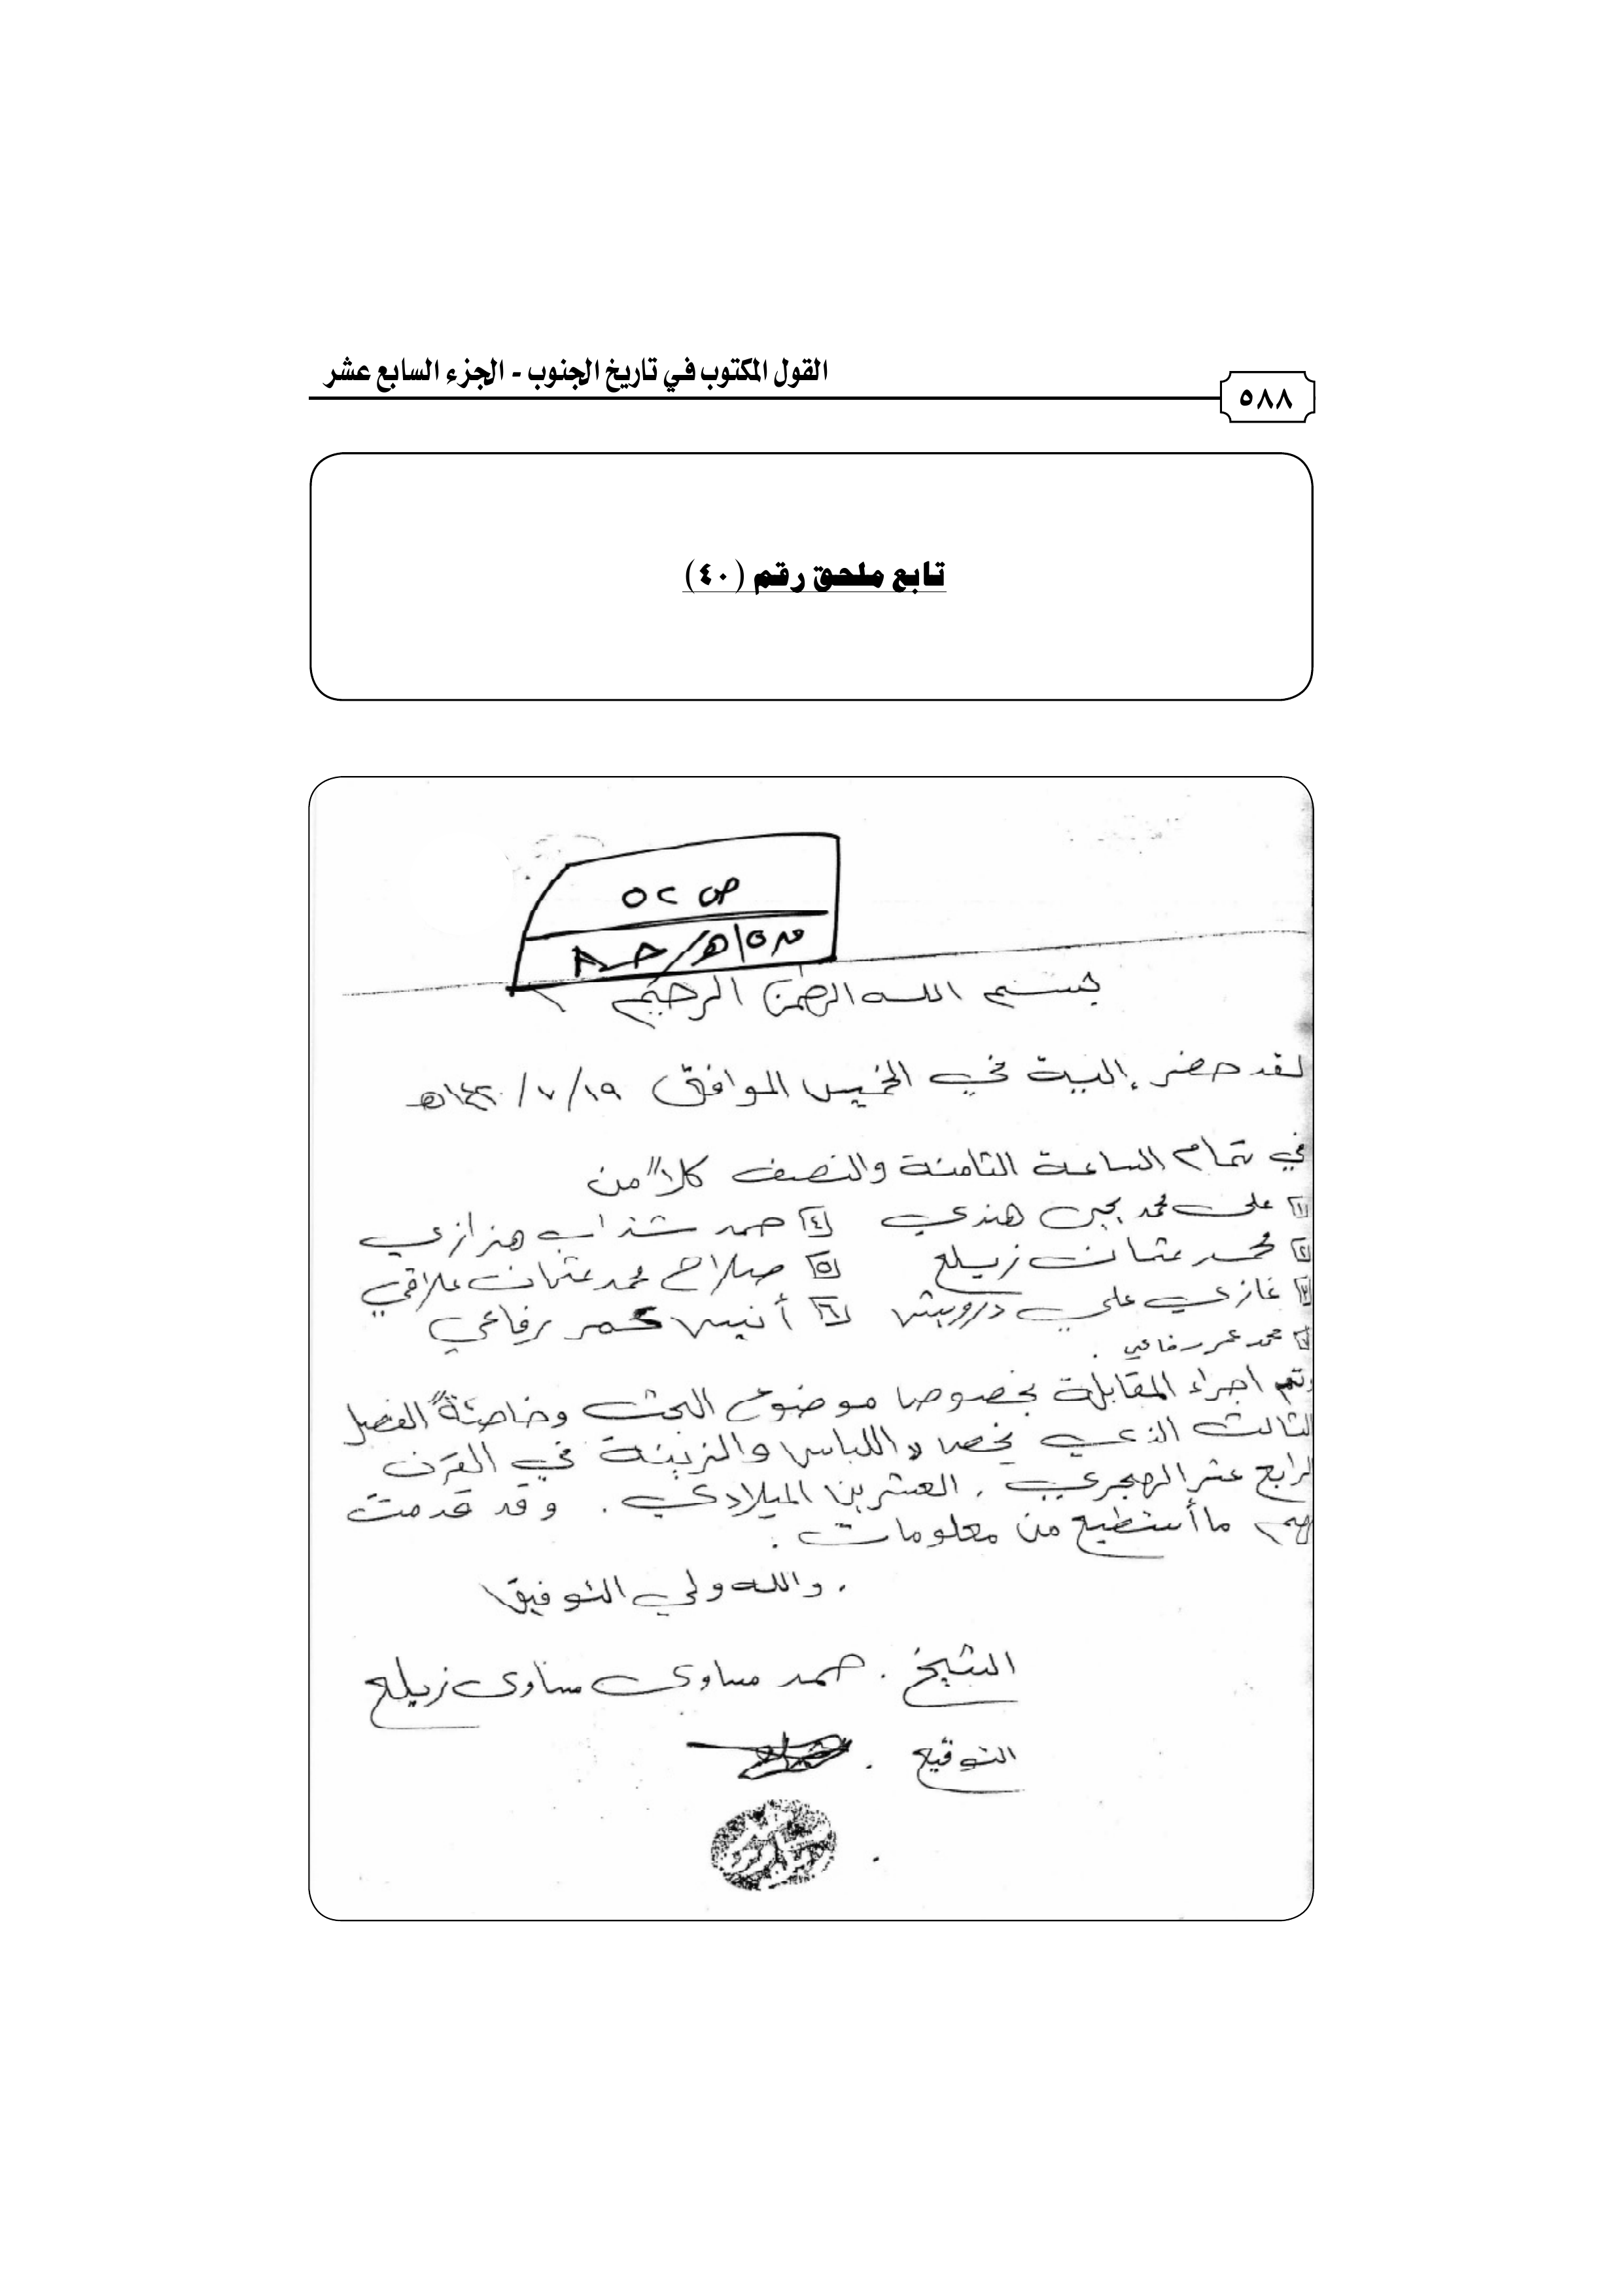 القول المكتوب في تاريخ الجنوب - الجزء السابع عشر
٥٨٨
تابع ملحق رقم (٤٠)
ص ٥٢
بسم الله الرحمن الرحيم
لقد حضر إلبية في الخميس الموافق ١٩/ ٧/ ١٤٢٠هـ
في تمام الساعة الثامنة والنصف كلاً من
١ على محمد يحيى هندي ٤ حمد شذاب هزازي
٢ محمد عثمان زيلع ٥ صلاح محمد عثمان علاقي
٣ غازي علي درويش ٦ أنيس عمر رفاعي
٧ محمد عمر رفاعي .
وتم اجراء المقابلة بخصوص موضوع البحث وخاصةً الفصل
لثالث الذي يخص اللباس والزينة في القرن
لرابع عشر الهجري . العشرين الميلادي . وقد قدمت
لهم ما أستطيع من معلومات .
. والله ولي التوفيق
الشيخ . حمد مساوى مساوى زيلع
التوقيع .